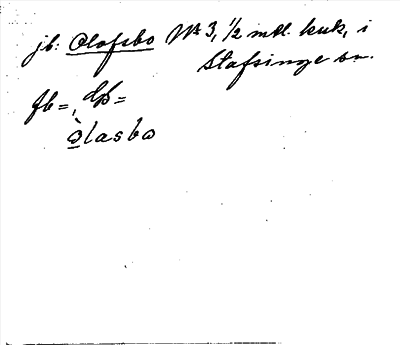 jb: Olofsbo No 3, 1/2 mtl. kuk, i
Stafsinge sn.
fb =, dβ =
òlasbo